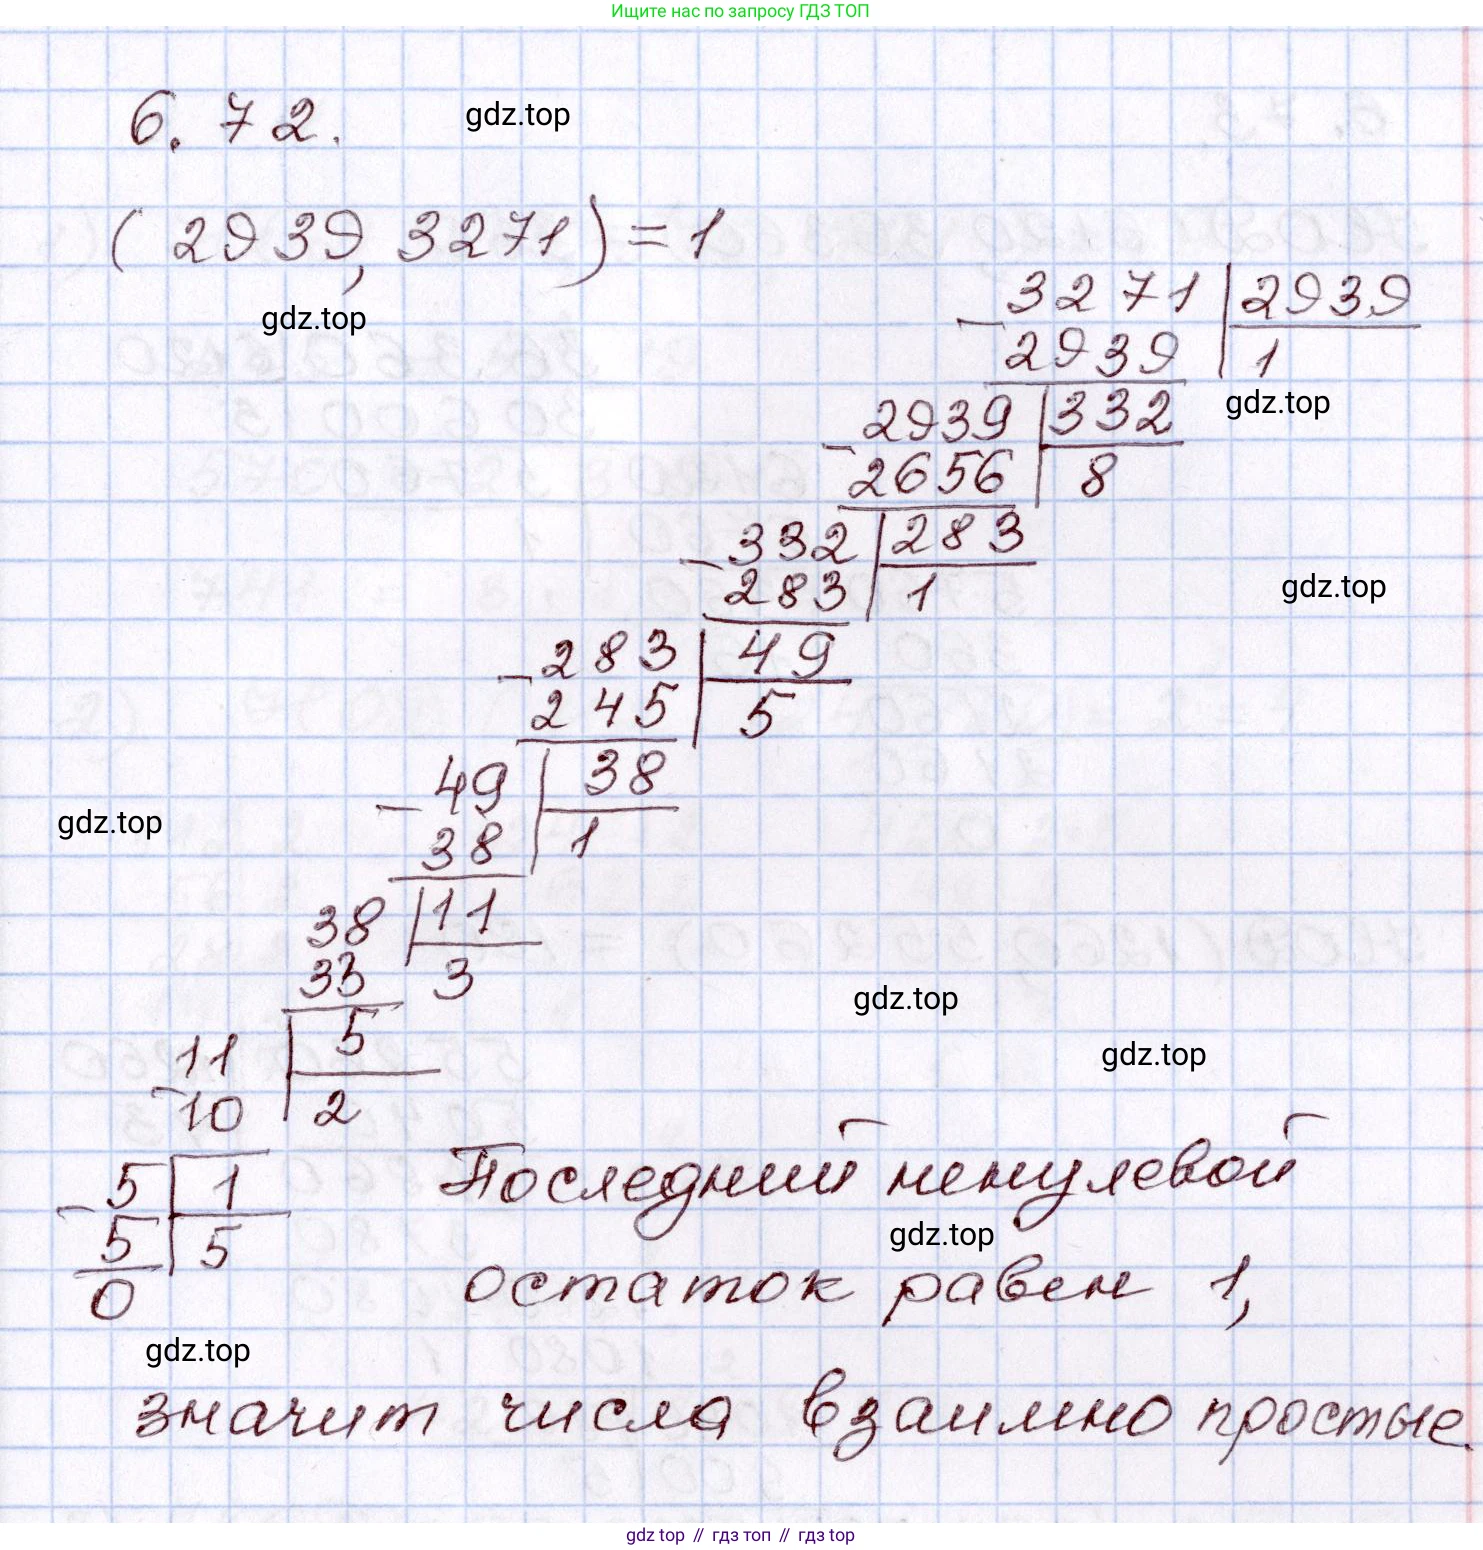 Ищите нас по запросу ГДЗ ТОП
6.72.
gdz.top
(2939, 3271) = 1
gdz.top
3271 | 2939
- 2939 | 1
gdz.top
2939 | 332
- 2656 | 8
332 | 283
- 283 | 1
gdz.top
283 | 49
- 245 | 5
49 | 38
- 38 | 1
gdz.top
38 | 11
33 | 3
gdz.top
11 | 5
- 10 | 2
gdz.top
5 | 1
- 5 | 5
0
Последний ненулевой
gdz.top
остаток равен 1,
gdz.top
значит числа взаимно простые.
gdz.top // гдз топ // гдз.top